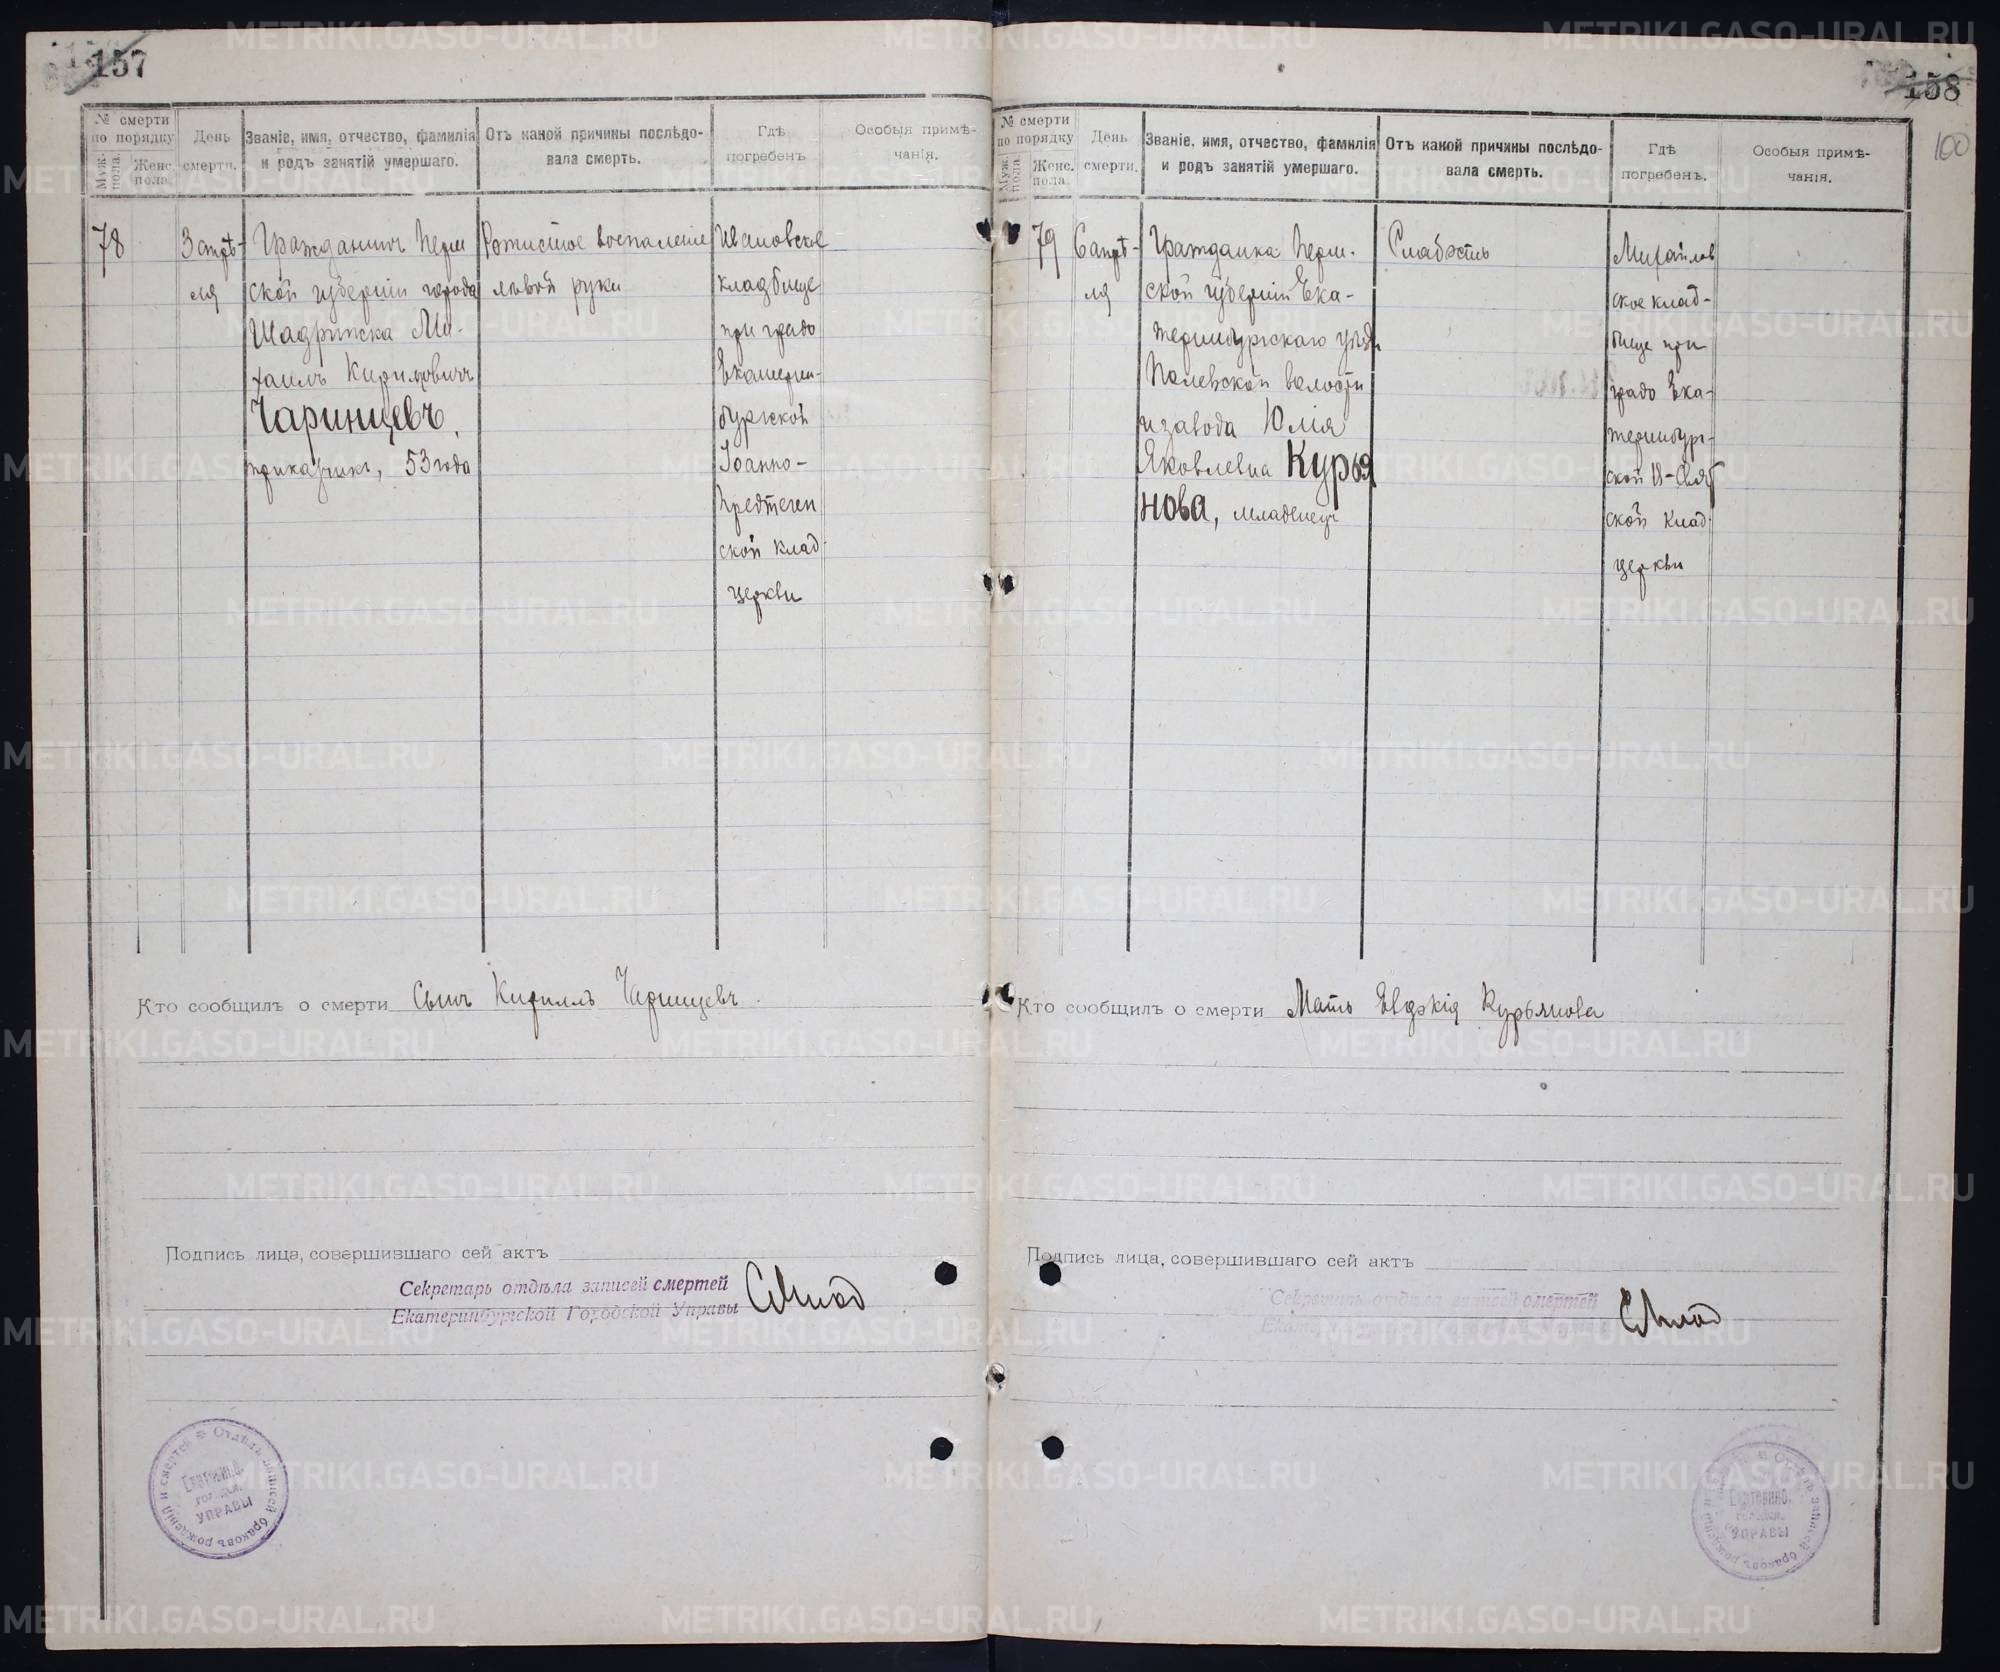 157
№ смерти
по порядку
Муж. пола.
Женс. пола.
День
смерти.
Званіе, имя, отчество, фамилія
и родъ занятій умершаго.
Отъ какой причины послѣдо-
вала смерть.
Гдѣ
погребенъ.
Особыя примѣ-
чанія.
78
3 апрѣ-
ля
Гражданинъ Перм
ской губерніи города
Шадринска Ми-
хаилъ Кириловичъ
Чаринцевъ,
приказчикъ, 53 года
Рожистое воспаленіе
лѣвой руки
Ивановское
кладбище
при градо
Екатерин-
бургской
Іоанно-
Предтечен
ской клад-
церкви
Кто сообщилъ о смерти Сынъ Кириллъ Чаринцевъ.
Подпись лица, совершившаго сей актъ
Секретарь отдѣла записей смертей
Екатеринбургской Городской Управы
Отдѣлъ записей браковъ рожденій и смертей
Екатеринб.
городск.
УПРАВЫ
158
100
№ смерти
по порядку
Муж. пола.
Женс. пола.
День
смерти.
Званіе, имя, отчество, фамилія
и родъ занятій умершаго.
Отъ какой причины послѣдо-
вала смерть.
Гдѣ
погребенъ.
Особыя примѣ-
чанія.
79
6 апрѣ-
ля
Гражданка Перм-
ской губерніи Ека-
теринбургскаго уѣзда
Полевской волости
и завода Юлія
Яковлевна Курья
нова, младенецъ
Слабость
Михайлов
ское клад-
бище при
градо Ека-
теринбург-
ской
ской клад-
церкви
Кто сообщилъ о смерти Мать Евдокія Курьянова
Подпись лица, совершившаго сей актъ
Секретарь отдѣла записей смертей
Отдѣлъ записей браковъ рожденій и
Екатеринб.
городск.
УПРАВЫ
METRIKI.GASO-URAL.RU